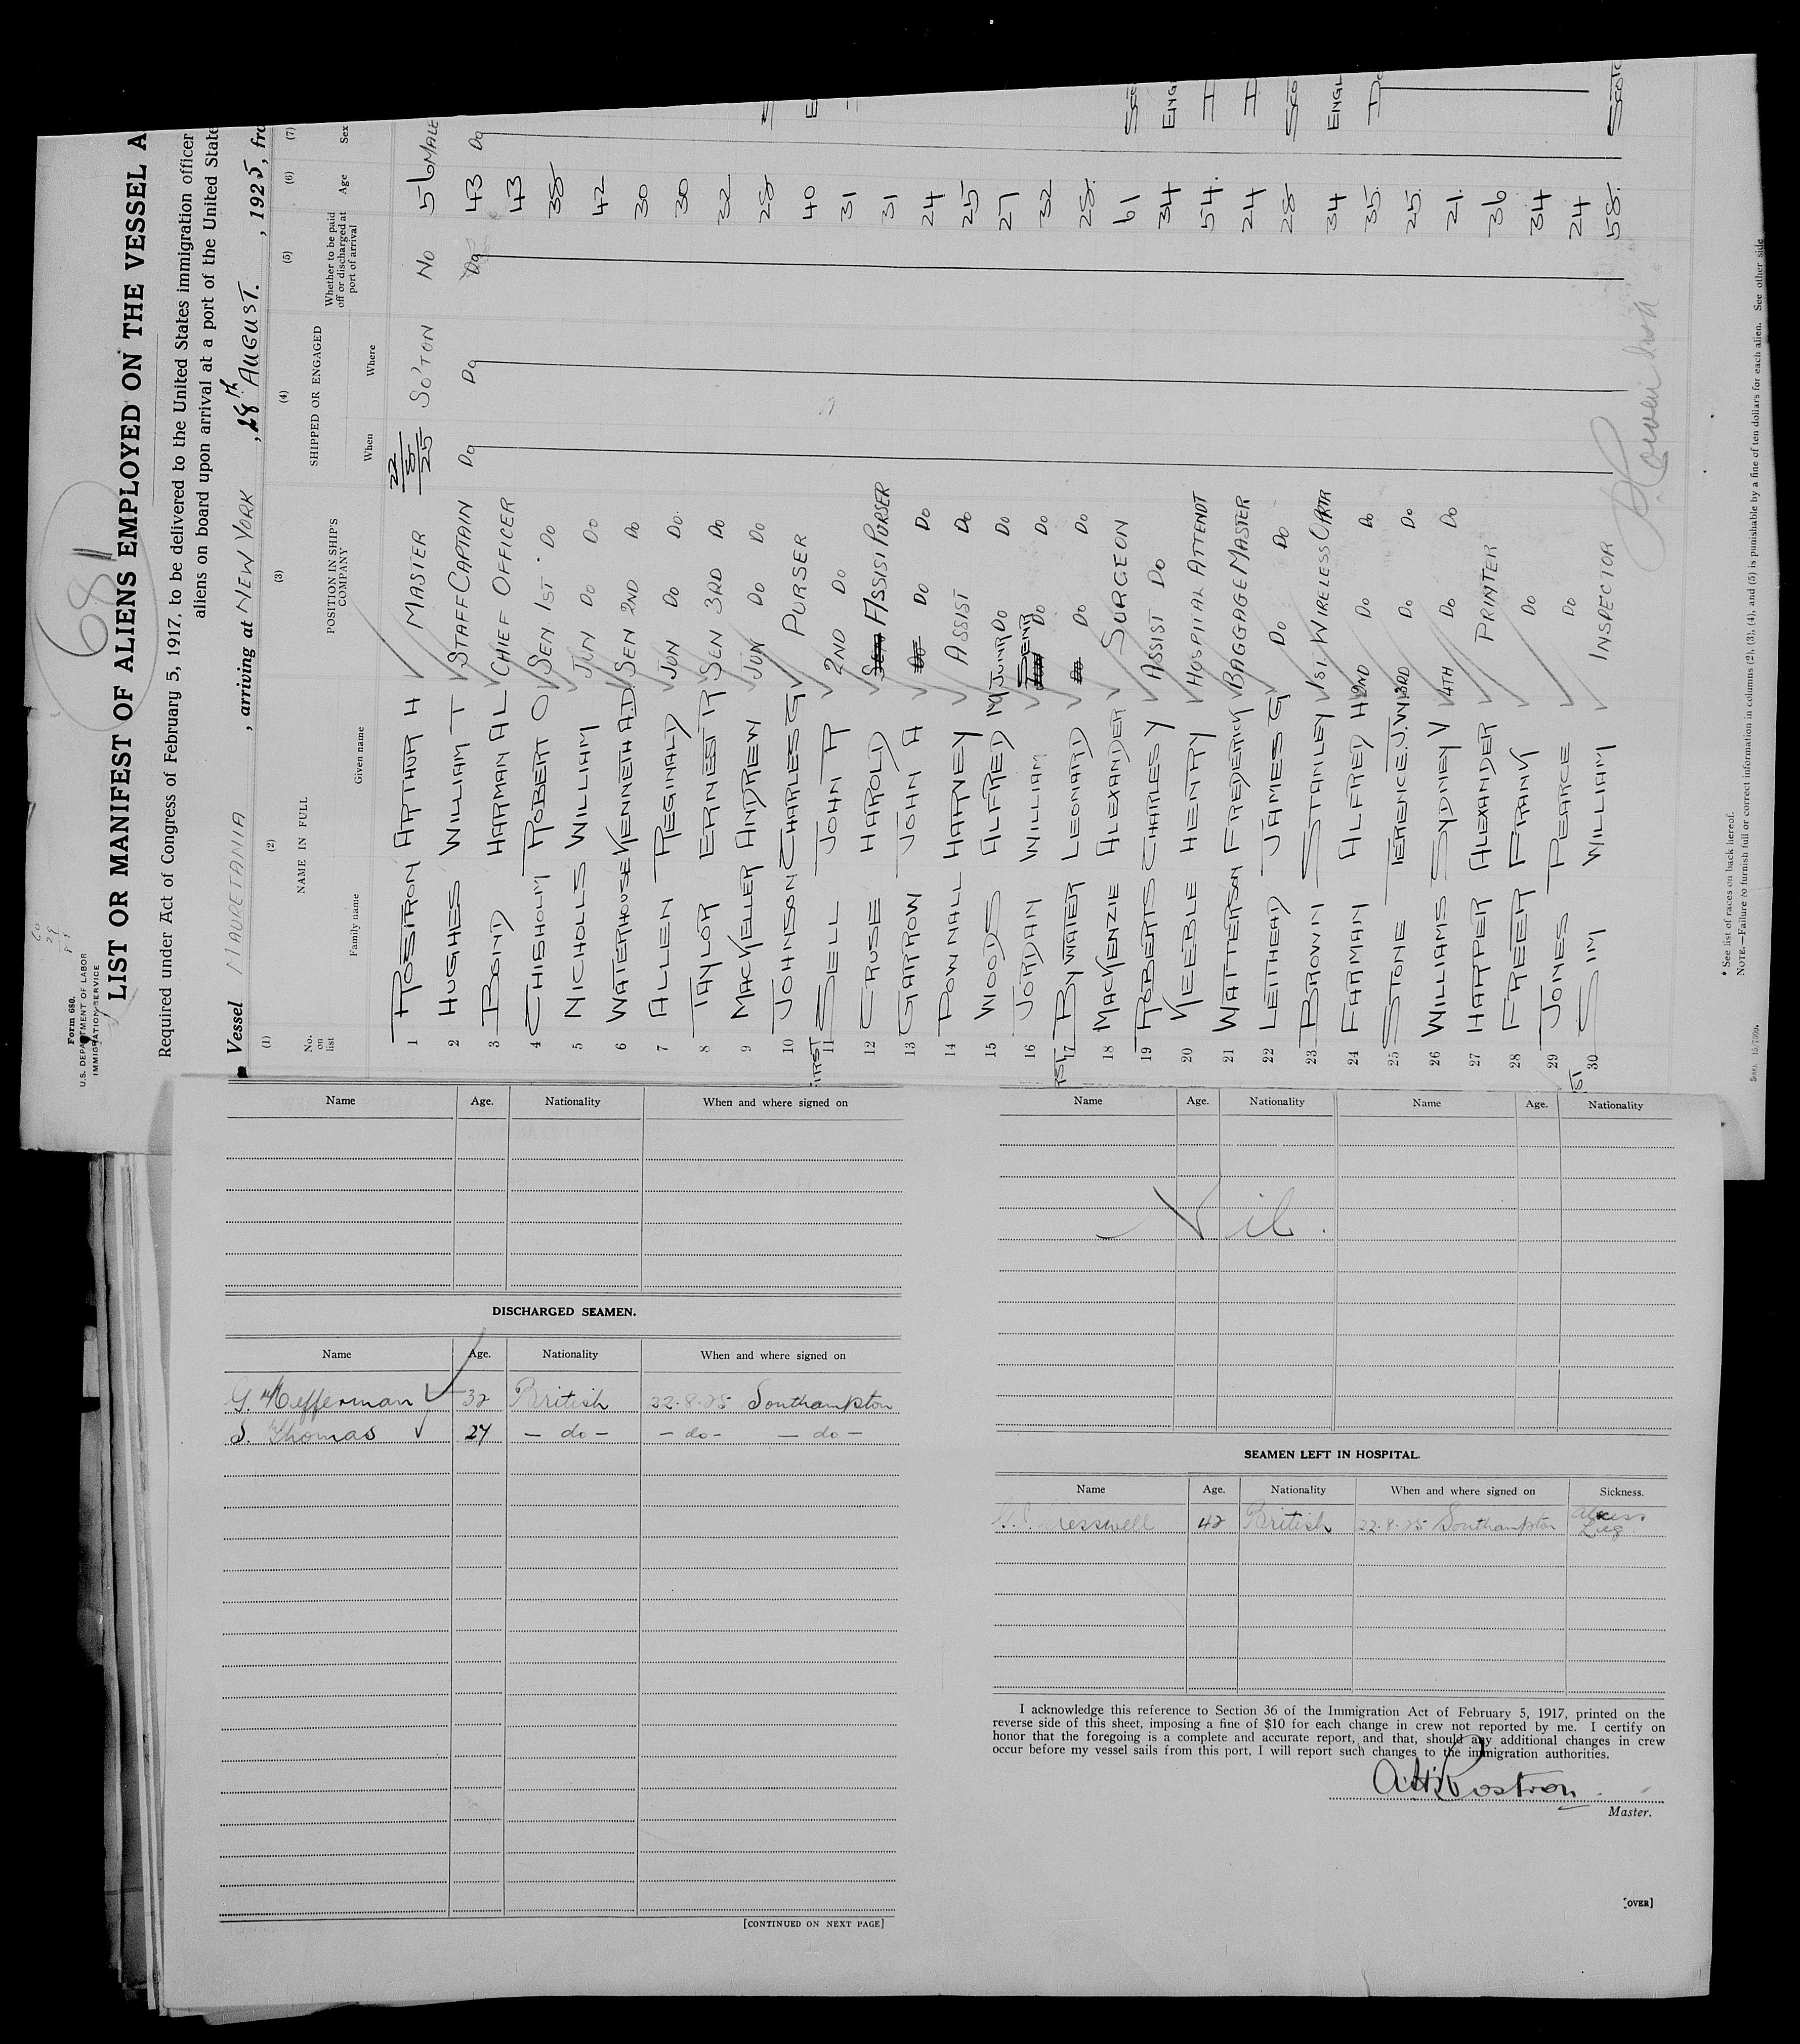 681
Form 680.
U.S. DEPARTMENT OF LABOR
IMMIGRATION SERVICE
LIST OR MANIFEST OF ALIENS EMPLOYED ON THE VESSEL A
Required under Act of Congress of February 5, 1917, to be delivered to the United States immigration officer
aliens on board upon arrival at a port of the United State
Vessel MAURETANIA , arriving at NEW YORK , 28th AUGUST. , 1925, fro
(1) (2) (3) (4) (5) (6) (7)
No. on list NAME IN FULL POSITION IN SHIP'S COMPANY SHIPPED OR ENGAGED Whether to be paid off or discharged at port of arrival Age Sex
Family name Given name When Where
1 ROSTRON ARTHUR H MASTER 22/8/25 SO'TON NO 56 MALE
2 HUGHES WILLIAM T STAFF CAPTAIN DO DO DO 43 DO
3 BOND HARMAN AL CHIEF OFFICER 43
4 CHISHOLM ROBERT O SEN 1ST DO 38
5 NICHOLLS WILLIAM JUN DO DO 42
6 WATERHOUSE KENNETH A.D SEN 2ND DO 30
7 ALLEN REGINALD JUN DO DO 30
8 TAYLOR ERNEST R SEN 3RD DO 32
9 MACKELLER ANDREW JUN DO DO 28
10 JOHNSON CHARLES G PURSER 40
11 SELL JOHN R 2ND DO 31
12 CRUSE HAROLD ASSIST PURSER 31
13 GARROW JOHN A DO DO 24
14 POWNALL HARVEY ASSIST DO 25
15 WOODS ALFRED M JUNR DO DO 27
16 JORDAN WILLIAM SENR DO DO 32
17 BYWATER LEONARD DO DO 28.
18 MACKENZIE ALEXANDER SURGEON 61
19 ROBERTS CHARLES Y ASSIST DO 34
20 KEEBLE HENRY HOSPITAL ATTENDT 54.
21 WATTERSON FREDERICK BAGGAGE MASTER 24
22 LEITHEAD JAMES G DO DO 28
23 BROWN STANLEY 1ST WIRELESS OPRTR 34
24 FARMAN ALFRED H 2ND DO DO 35.
25 STONE TERENCE.J.W 3RD DO DO 25.
26 WILLIAMS SYDNEY V 4TH DO DO 21.
27 HARPER ALEXANDER PRINTER 36
28 FREER FRANK DO 34
29 JONES PEARCE DO 24
30 SIM WILLIAM INSPECTOR 58.
* See list of races on back hereof.
NOTE.—Failure to furnish full or correct information in columns (2), (3), (4), and (5) is punishable by a fine of ten dollars for each alien. See other side
Name Age. Nationality When and where signed on
DISCHARGED SEAMEN.
Name Age. Nationality When and where signed on
G. Hefferman 32 British 22.8.25 Southampton
S. Thomas 27 — do — — do — — do —
[CONTINUED ON NEXT PAGE]
Name Age. Nationality Name Age. Nationality
Nil.
SEAMEN LEFT IN HOSPITAL.
Name Age. Nationality When and where signed on Sickness.
Cresswell 42 British 22.8.25 Southampton Abcess Leg
I acknowledge this reference to Section 36 of the Immigration Act of February 5, 1917, printed on the
reverse side of this sheet, imposing a fine of $10 for each change in crew not reported by me. I certify on
honor that the foregoing is a complete and accurate report, and that, should any additional changes in crew
occur before my vessel sails from this port, I will report such changes to the immigration authorities.
A.H. Rostron
Master.
[OVER]